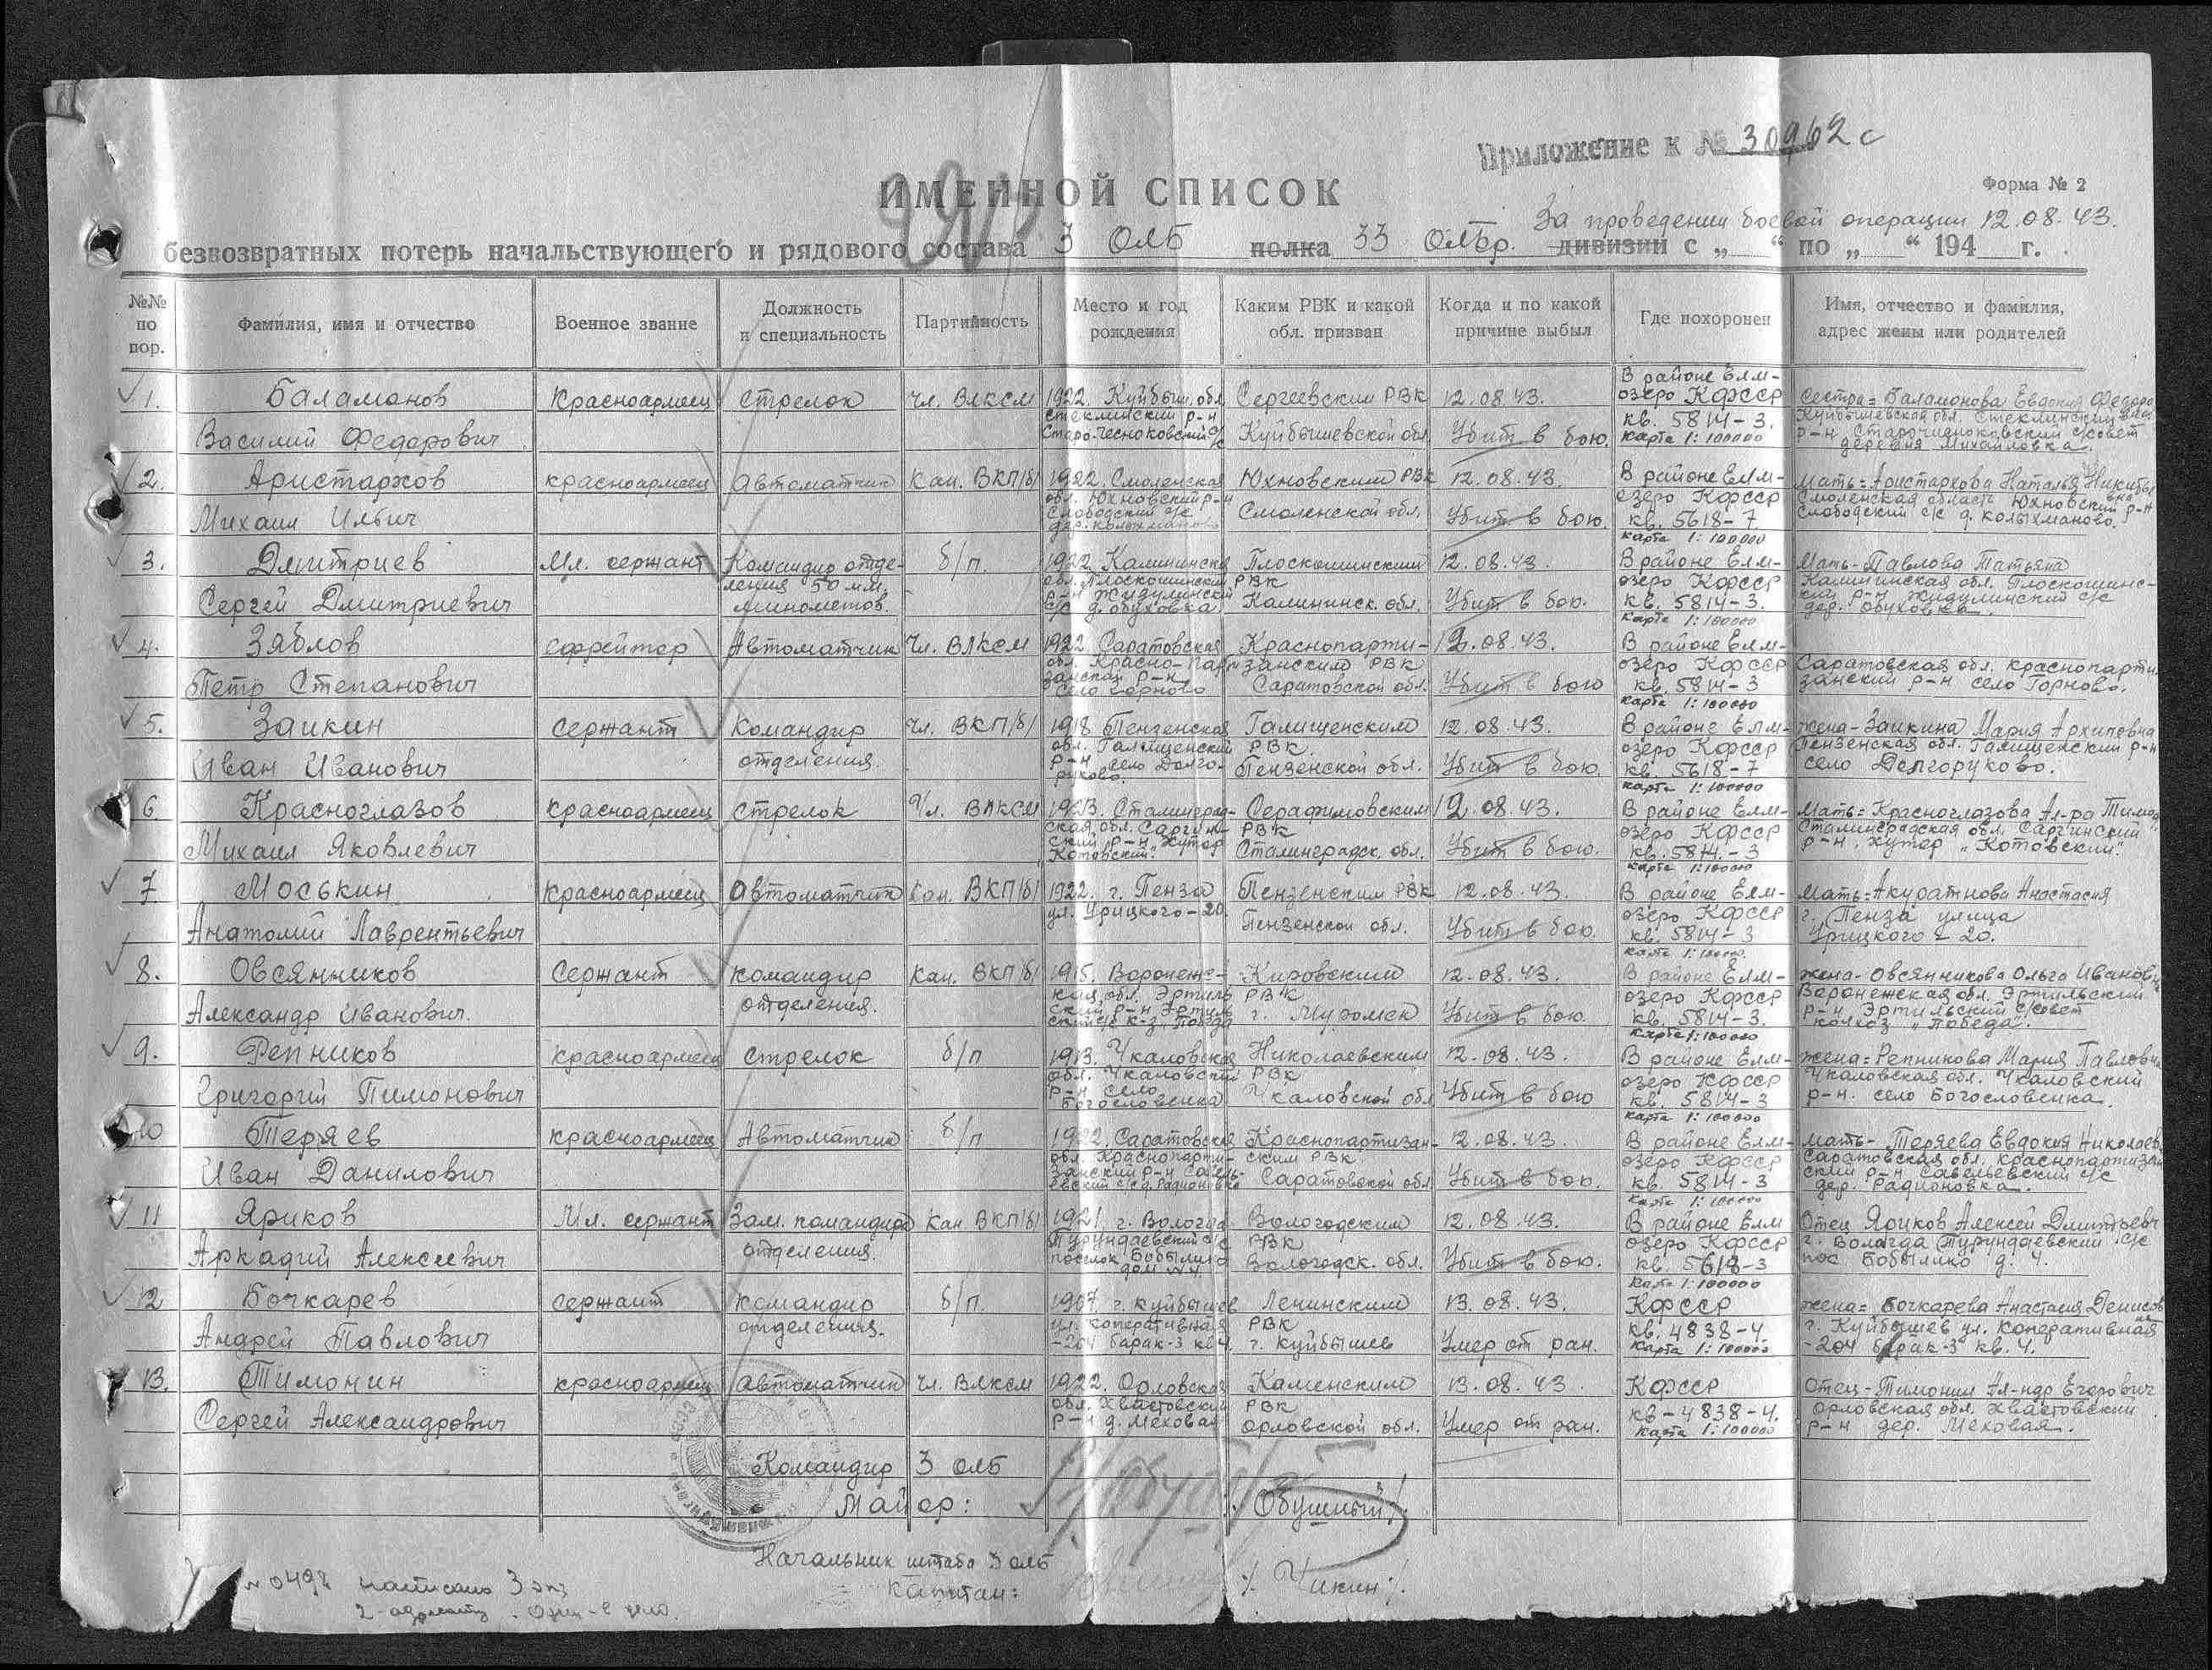 Приложение к № 30962с
ИМЕННОЙ СПИСОК
Форма № 2
За проведении боевой операции 12.08.43.
безвозвратных потерь начальствующего и рядового состава 3 ОЛБ полка 33 ОЛБр. дивизии с „ “ по „ “ 194 г.
№№ по пор.
Фамилия, имя и отчество
Военное звание
Должность и специальность
Партийность
Место и год рождения
Каким РВК и какой обл. призван
Когда и по какой причине выбыл
Где похоронен
Имя, отчество и фамилия, адрес жены или родителей
1. Баламонов Красноармеец стрелок чл. ВЛКСМ 1922. Куйбыш. обл. Сергеевским РВК 12.08.43. В районе Елм-озеро КФССР Сестра = Баламонова Евдокия Федоро
Василий Федорович Стеклинский р-н Старо-Чесноковский с/с Куйбышевской обл. Убит в бою. кв. 5814-3. карта 1:100000 Куйбышевская обл. Стеклинский р-н Старочесноковский с/совет деревня Михайловка.
2. Аристархов красноармеец автоматчик Кан. ВКП/б/ 1922. Смоленская Юхновским РВК 12.08.43. В районе Елм- Мать = Аристархова Наталья Никитьевна
Михаил Ильич обл. Юхновский р-н Слободский с/с дер. Колыхманово Смоленской обл. Убит в бою. озеро КФССР кв. 5618-7. карта 1:100000 Смоленская область Юхновский р-н Слободский с/с д. Колыхманово.
3. Дмитриев Мл. сержант Командир отде- б/п. 1922. Калининская Плоскошинский 12.08.43. В районе Елм- Мать - Павлова Татьяна
Сергей Дмитриевич ления 50 мм. минометов. обл. Плоскошинский р-н Жидулинский с/с д. Обуховка РВК Калининск. обл. Убит в бою. озеро КФССР кв. 5814-3. карта 1:100000 Калининская обл. Плоскошинский р-н Жидулинский с/с дер. Обуховка.
4. Зяблов ефрейтор Автоматчик Чл. ВЛКСМ 1922. Саратовская Краснопарти- 12.08.43. В районе Елм-
Петр Степанович обл. Красно-Партизанский р-н село Горново занским РВК Саратовской обл. Убит в бою озеро КФССР кв. 5814-3 карта 1:100000 Саратовская обл. Краснопартизанский р-н село Горново.
5. Заикин сержант Командир чл. ВКП/б/ 1918. Пензенская Голищенским 12.08.43. В районе Елм- жена - Заикина Мария Архиповна
Иван Иванович отделения. обл. Голищенский р-н село Долгоруково. РВК. Пензенской обл. Убит в бою. озеро КФССР кв. 5618-7 карта 1:100000 Пензенская обл. Голищенский р-н село Долгоруково.
6. Красноглазов красноармеец стрелок Чл. ВЛКСМ 1923. Сталинград- Серафимовским 12.08.43. В районе Елм- Мать = Красноглазова Ал-ра Тимоф
Михаил Яковлевич ская обл. Саргинский р-н Хутор "Котовский". РВК Сталинградск. обл. Убит в бою. озеро КФССР кв. 5814-3 карта 1:100000 Сталинградская обл. Саргинский р-н. Хутор "Котовский".
7. Моськин красноармеец автоматчик Кан. ВКП/б/ 1922. г. Пенза Пензенским РВК 12.08.43. В районе Елм- Мать = Акуратнова Анастасия
Анатолий Лаврентьевич ул. Урицкого-20. Пензенской обл. Убит в бою. озеро КФССР кв. 5814-3 карта 1:100000. г. Пенза улица Урицкого 20.
8. Овсянников Сержант командир Кан. ВКП/б/ 1915. Воронежс- Кировским 12.08.43. В районе Елм- жена - Овсянникова Ольга Ивановна
Александр Иванович. отделения. кая обл. Эртильский р-н к-з. Победа РВК г. Муромск Убит в бою. озеро КФССР кв. 5814-3. карта 1:100000 Воронежская обл. Эртильский р-н. Эртильский с/совет колхоз "Победа".
9. Репников красноармеец стрелок б/п 1913. Чкаловская Николаевским 12.08.43. В районе Елм- жена = Репникова Мария Павловна
Григорий Пимонович обл. Чкаловский р-н село Богословенка РВК Чкаловской обл Убит в бою озеро КФССР кв. 5814-3 карта 1:100000 Чкаловская обл. Чкаловский р-н. село Богословенка.
10 Теряев красноармеец Автоматчик б/п 1922. Саратовская Краснопартизан- 12.08.43. В районе Елм- мать - Теряева Евдокия Николаев
Иван Данилович обл. Краснопартизанский р-н Савельевский с/с д. Радионовка ским РВК. Саратовской обл Убит в бою. озеро КФССР кв. 5814-3 карта 1:100000 Саратовская обл. Краснопартизанский р-н Савельевский с/с дер. Радионовка.
11 Яриков Мл. сержант Зам. командира Кан. ВКП/б/ 1921. г. Вологда Вологодским 12.08.43. В районе Елм Отец Яриков Алексей Дмитрьевич
Аркадий Алексеевич отделения. Турундаевский с/с поселок Бобылико дом № 4. РВК Вологодск. обл. Убит в бою. озеро КФССР кв. 5618-3 карта 1:100000 г. Вологда Турундаевский с/с пос. Бобылико д. 4.
12 Бочкарев сержант командир б/п. 1907. г. Куйбышев Ленинским 13.08.43. КФССР жена = Бочкарева Анастасия Денисов
Андрей Павлович отделения. ул. Коперативная -204 барак-3 кв 4. РВК г. Куйбышев Умер от ран. кв. 4838-4. карта 1:100000 г. Куйбышев ул. Коперативная -204 барак-3 кв. 4.
13. Тимонин красноармеец автоматчик чл. ВЛКСМ 1922. Орловская Каменским 13.08.43. КФССР Отец - Тимонин Ал-ндр Егорович
Сергей Александрович обл. Хвастовский р-н д. Меховая РВК Орловской обл. Умер от ран. кв - 4838-4. карта 1:100000 Орловская обл. Хвастовский р-н дер. Меховая.
Командир 3 ОЛБ
Майор: /Обушный/.
Начальник штаба 3 ОЛБ
Капитан: ./. Чикин ./.
№ 0498 написано 3 экз
2-адресату. Один-в дело.